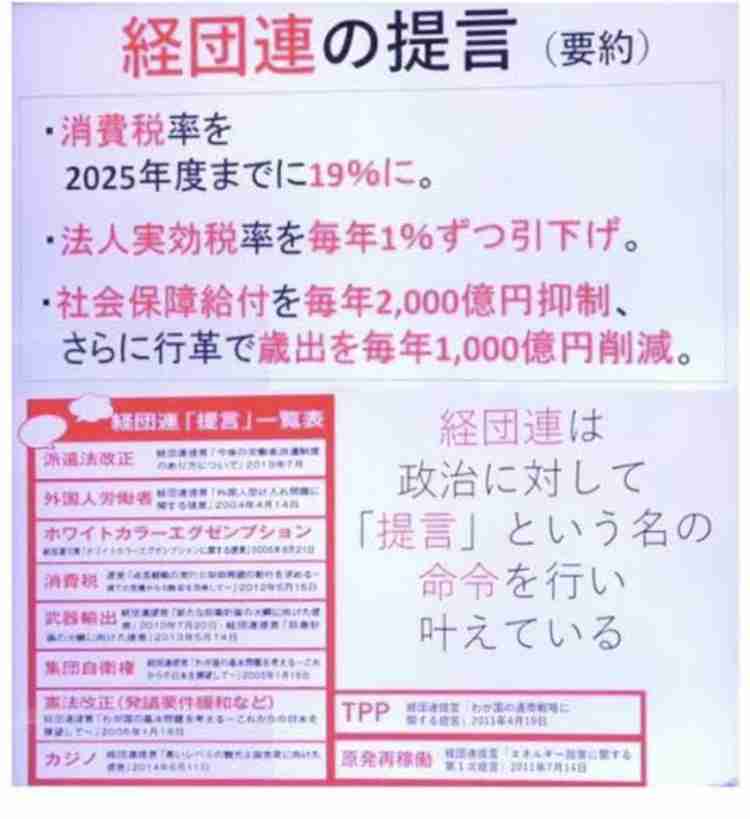 経団連の提言（要約）
・消費税率を
2025年度までに19%に。
・法人実効税率を毎年1%ずつ引下げ。
・社会保障給付を毎年2,000億円抑制、
さらに行革で歳出を毎年1,000億円削減。
経団連「提言」一覧表
派遣法改正
経団連提言「今後の労働者派遣制度
のあり方について」2013年7月
外国人労働者
経団連提言「外国人受け入れ問題に
関する提言」2004年4月14日
ホワイトカラーエグゼンプション
「ホワイトカラーエグゼンプションに関する提言」2005年6月21日
消費税
2012年5月15日
武器輸出
経団連提言「新たな防衛計画の大綱に向けた提
言」2010年7月20日・経団連提言「防衛計
画の大綱に向けた提言」2013年5月14日
集団自衛権
経団連提言「わが国の基本問題を考える～これ
からの日本を展望して～」2005年1月18日
憲法改正（発議要件緩和など）
経団連提言「わが国の基本問題を考える～これからの日本を
展望して～」2005年1月18日
カジノ
経団連提言「高いレベルの観光立国実現に向けた
提言」2014年6月11日
経団連は
政治に対して
「提言」という名の
命令を行い
叶えている
TPP
経団連提言「わが国の通商戦略に
関する提言」2011年4月19日
原発再稼働
経団連提言「エネルギー政策に関する
第1次提言」2011年7月14日